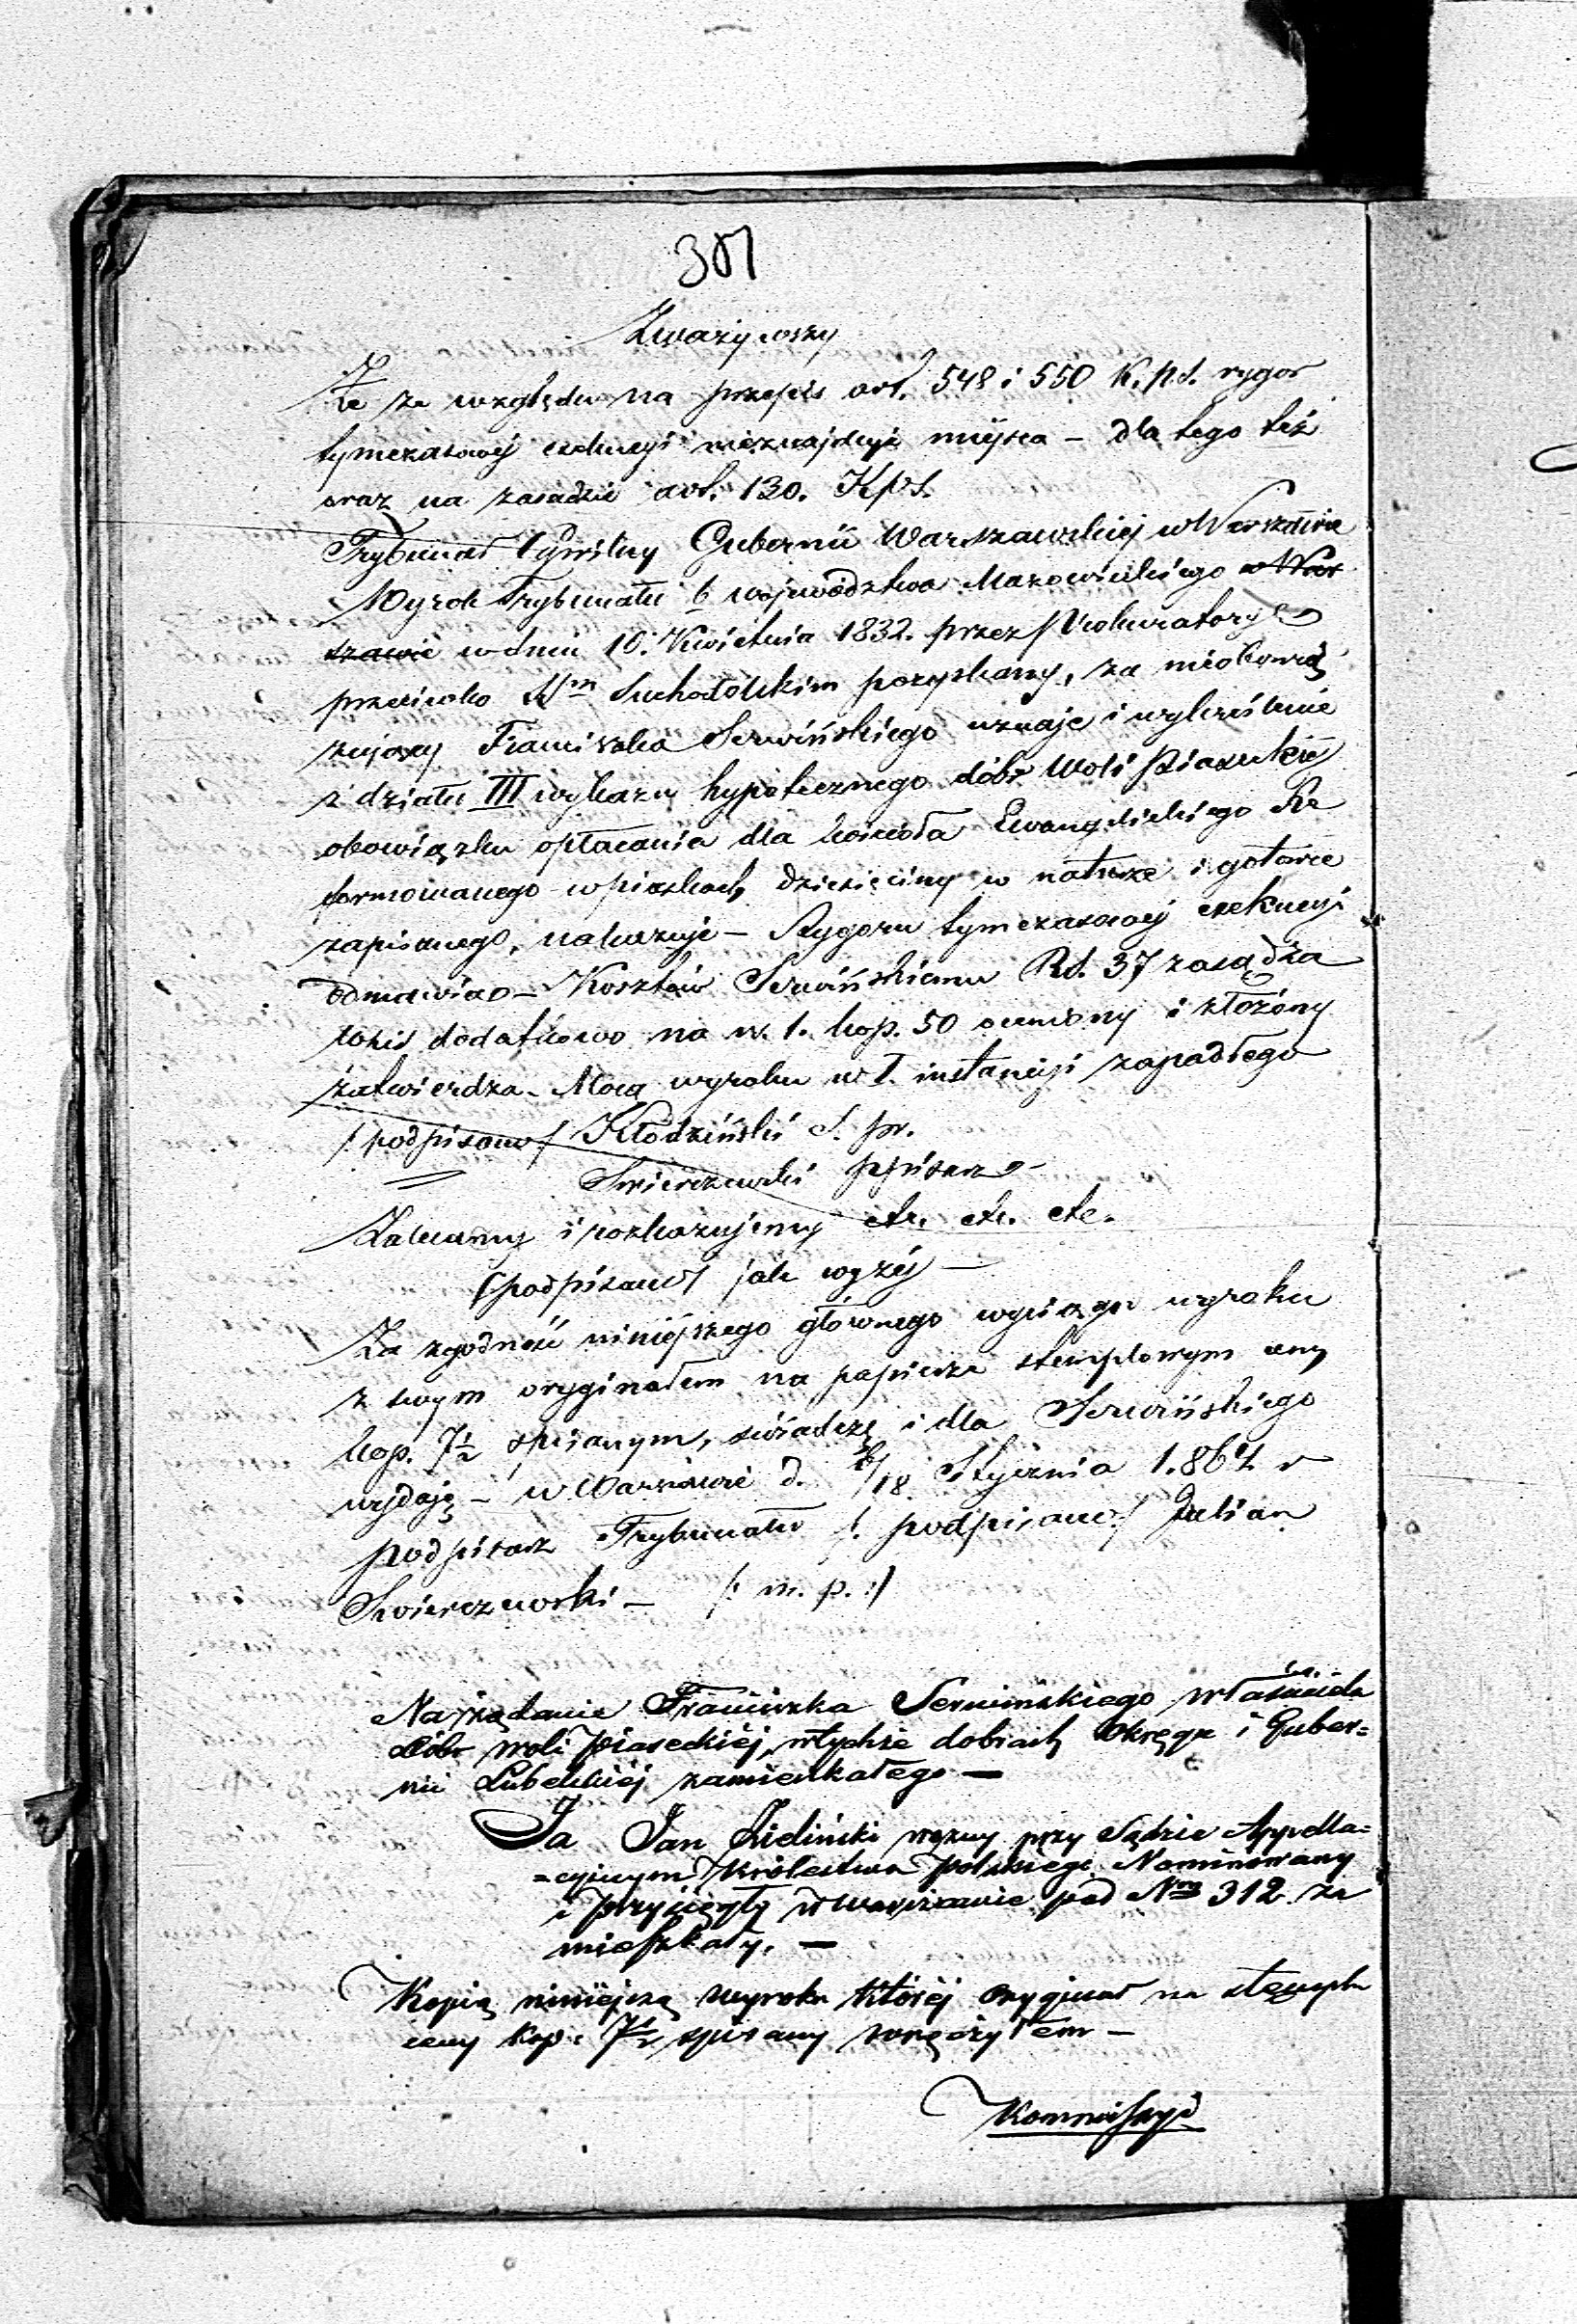 307
Zważywszy
Że ze względu na przepis art. 548 i 550 K. p. S. rygor
tymczasowej exekucyi nieznajduje miejsca – dla tego też
oraz na zasadzie art. 130. Kps.
Trybunał Cywilny Gubernii Warszawskiej w Warszawie
Wyrok Trybunału b województwa Mazowieckiego w War
szawie w dniu 10. Kwietnia 1832. przez Prokuratoryę
przeciwko Suchodolskim pozyskany, za nieobowią
zujący Franciszka Serwińskiego uznaje i wykreślenie
z działu III wykazu hypotecznego dóbr Woli Piaseckiej
obowiązku opłacania dla kościoła Ewangelickiego Re
formowanego w piaskach dziesięciny w naturze i gotowce
zapisanego, nakazuje – Rygoru tymczasowej exekucyi
odmawia – Kosztów Serwińskiemu Rs. 37 zasądza
wpis dodatkowo na rs. 1. kop. 50 oceniony i złożony
zatwierdza – Mocą wyroku w I. instancyi zapadłego
/: podpisano / Kłodziński S. pr.
Swierczewski ppisarz
Zalecamy i rozkazujemy etc. etc. etc.
(podpisano/ jak wyżej –
Za zgodność niniejszego głównego wyciągu wyroku
z swym oryginałem na papierze stemplowym ceny
kop. 7½ spisanym, świadczę i dla Serwińskiego
wydaję – w Warszawie d. /18 Stycznia 1.864 r
podpisarz Trybunału /. podpisano./ Julian
Swierczewski – /: m. p. :/
Na żądanie Franciszka Serwinskiego właściciela
dóbr woli Piaseckiéj, wtychże dobrach Okręgu i Guber=
nii Lubelskiéj zamieszkałego —
Ja Jan Zieliński woźny przy Sądzie Appella=
=cyjnym Królestwa Polskiego Nominowany
i przysięgły w Warszawie pod Nrm 312 za
mieszkały. —
Kopią niniejszą wyroku którój Oryginał na stemplu
ceny kop. 7½ spisany wręczyłem –
Kommissyi